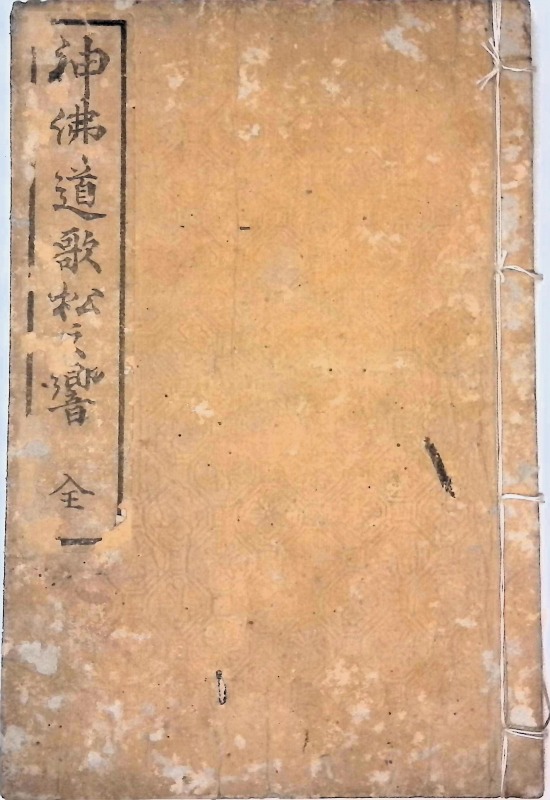 神佛道歌松之響 全